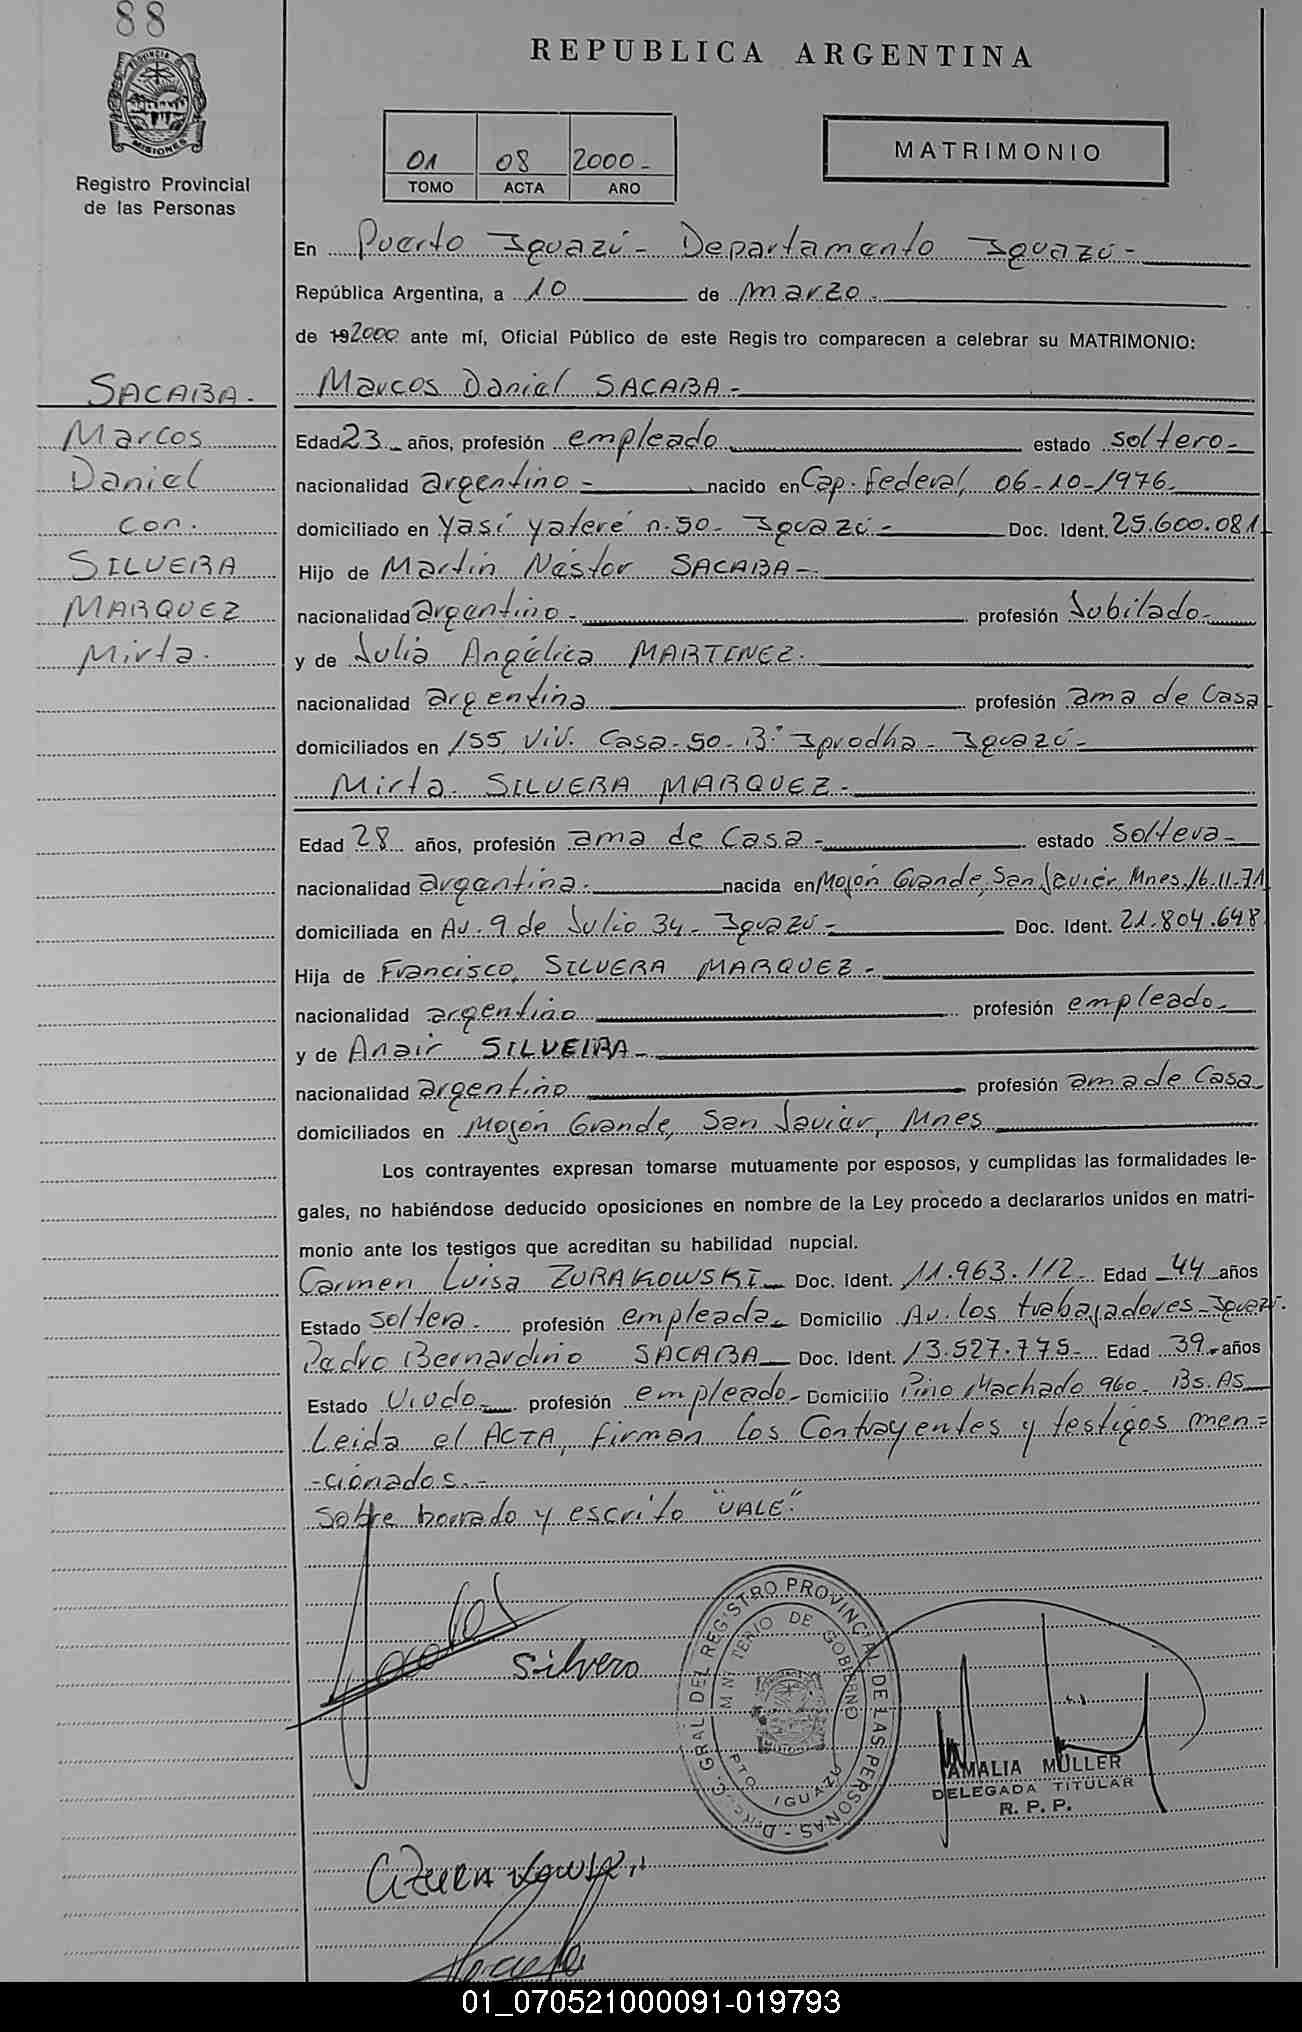 88
REPUBLICA ARGENTINA
PROVINCIA DE
MISIONES
Registro Provincial
de las Personas
01 08 2000-
TOMO ACTA AÑO
MATRIMONIO
En Puerto Iguazú - Departamento Iguazú -
República Argentina, a 10 de marzo.
de 192000 ante mí, Oficial Público de este Registro comparecen a celebrar su MATRIMONIO:
SACABA.
Marcos
Daniel
con.
SILVERA
MARQUEZ
Mirta.
Marcos Daniel SACABA -
Edad 23 años, profesión empleado estado soltero -
nacionalidad argentino - nacido en Cap. Federal, 06-10-1976
domiciliado en Yasí yateré n.50- Iguazú - Doc. Ident. 25.600.081
Hijo de Martín Néstor SACABA -
nacionalidad argentino - profesión Jubilado -
y de Julia Angélica MARTINEZ.
nacionalidad argentina profesión ama de Casa
domiciliados en 155 Viv. Casa-50-B° Iprodha - Iguazú -
Mirta SILVERA MARQUEZ -
Edad 28 años, profesión ama de Casa - estado soltera -
nacionalidad argentina. nacida en Mojón Grande, San Javier Mnes. 16.11.71
domiciliada en Av. 9 de Julio 34- Iguazú - Doc. Ident. 21.804.648
Hija de Francisco, SILVERA MARQUEZ -
nacionalidad argentino profesión empleado -
y de Anair SILVEIRA -
nacionalidad argentino profesión ama de Casa
domiciliados en Mojón Grande, San Javier, Mnes
Los contrayentes expresan tomarse mutuamente por esposos, y cumplidas las formalidades le-
gales, no habiéndose deducido oposiciones en nombre de la Ley procedo a declararlos unidos en matri-
monio ante los testigos que acreditan su habilidad nupcial.
Carmen Luisa ZURAKOWSKI - Doc. Ident. 11.963.112 Edad 44 años
Estado soltera. profesión empleada Domicilio Av. los trabajadores - Iguazú.
Pedro Bernardino SACABA Doc. Ident. 13.527.775 - Edad 39 años
Estado Viudo profesión empleado - Domicilio Pino Machado 960 - Bs. AS
Leida el ACTA, firman los Contrayentes y testigos men=
-cionados. -
Sobre borrado y escrito "VALE".
Silvera
D. GRAL DEL REGISTRO PROVINCIAL DE LAS PERSONAS
MINISTERIO DE GOBIERNO
PTO. IGUAZU
AMALIA MULLER
DELEGADA TITULAR
R. P. P.
01_070521000091-019793